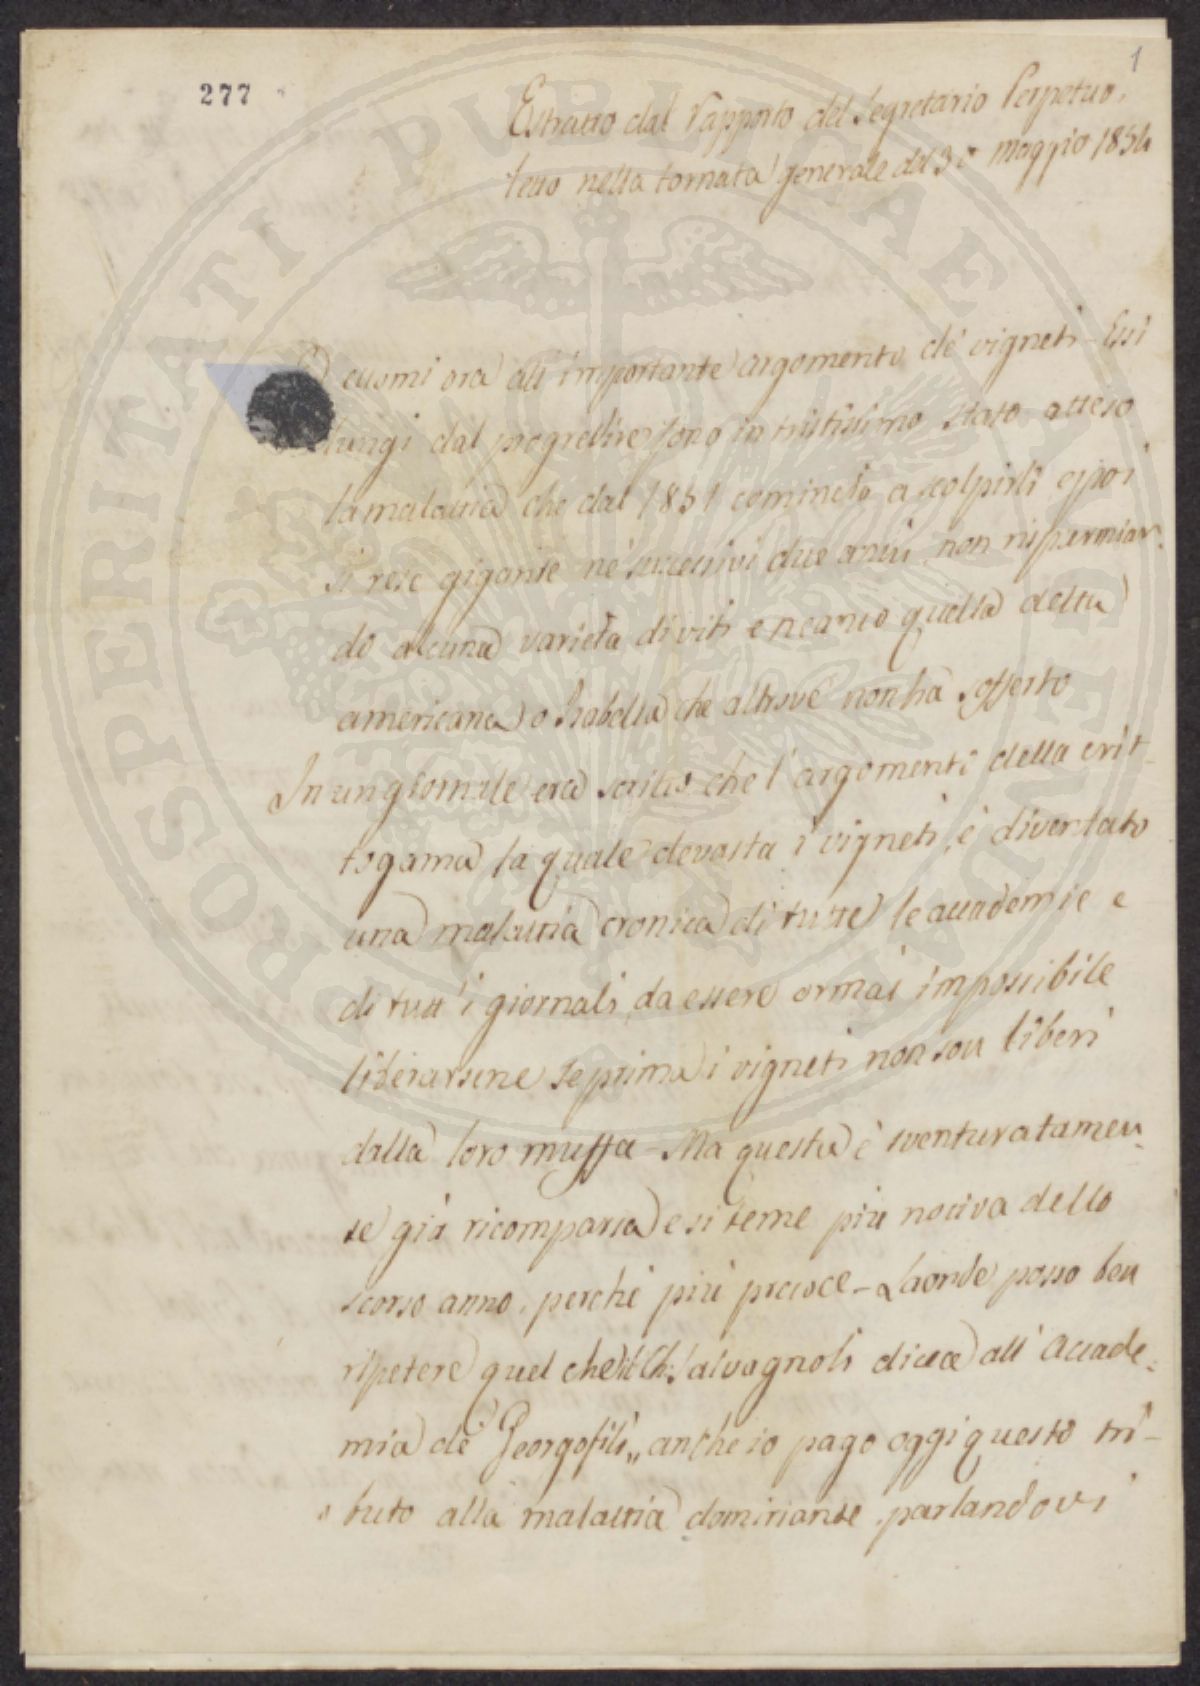 277
1
Estratto dal Rapporto del Segretario Perpetuo,
letto nella tornata generale del 30 Maggio 1854
Eccomi ora all'importante argomento de' vigneti - Essi
lungi dal progredire sono in tristissimo stato atteso
la malattia che dal 1851 cominciò a colpirli e poi
si rese gigante ne' successivi due anni, non risparmian-
do alcuna varietà di viti e neanco quella detta
americana o Isabella che altrove non ha sofferto
In un giornale era scritto che l'argomento della crit-
togama la quale devasta i vigneti, è diventato
una malattia cronica di tutte le accademie e
di tutt'i giornali, da essere ormai impossibile
liberarsene se prima i vigneti non sou liberi
dalla loro muffa - Ma questa è sventuratamen-
te già ricomparsa e si teme più nociva dello
scorso anno, perchè più precoce - Laonde posso ben
ripetere quel che il Ch: Salvagnoli dicea all'Accade-
mia de' Georgofili „ anche io pago oggi questo tri-
buto alla malattia dominante, parlandovi
PROSPERITATI PUBLICAE AUGENDAE